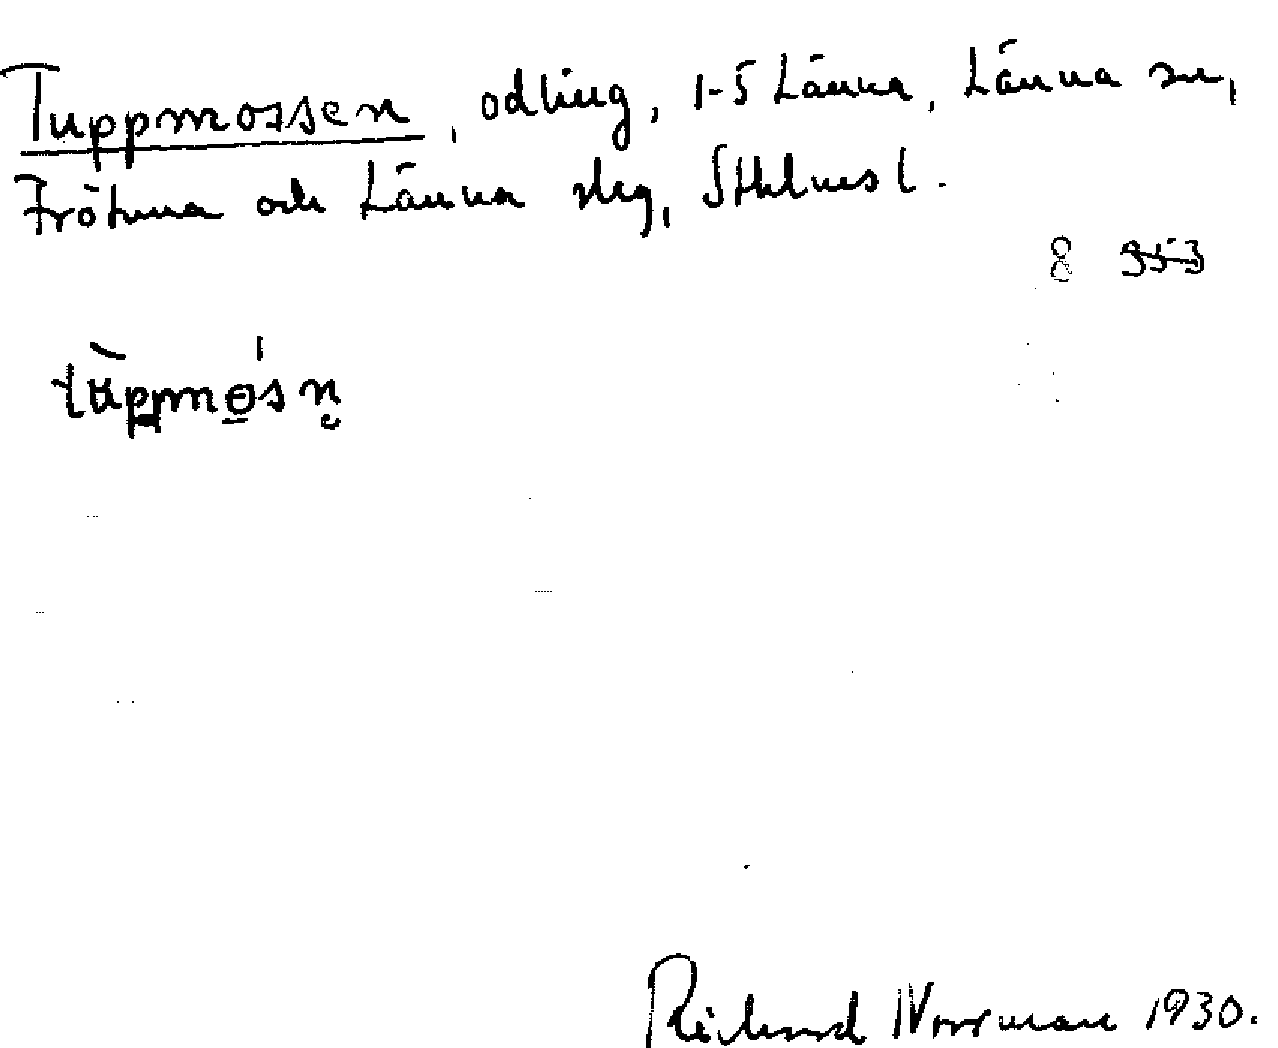 Tuppmossen, odling, 1-5 Länna, Länna sn,
Frötuna och Länna slg, Sthlms l.
8 953
tùppmo̲ˈsn̥
Richard Norrman 1930.